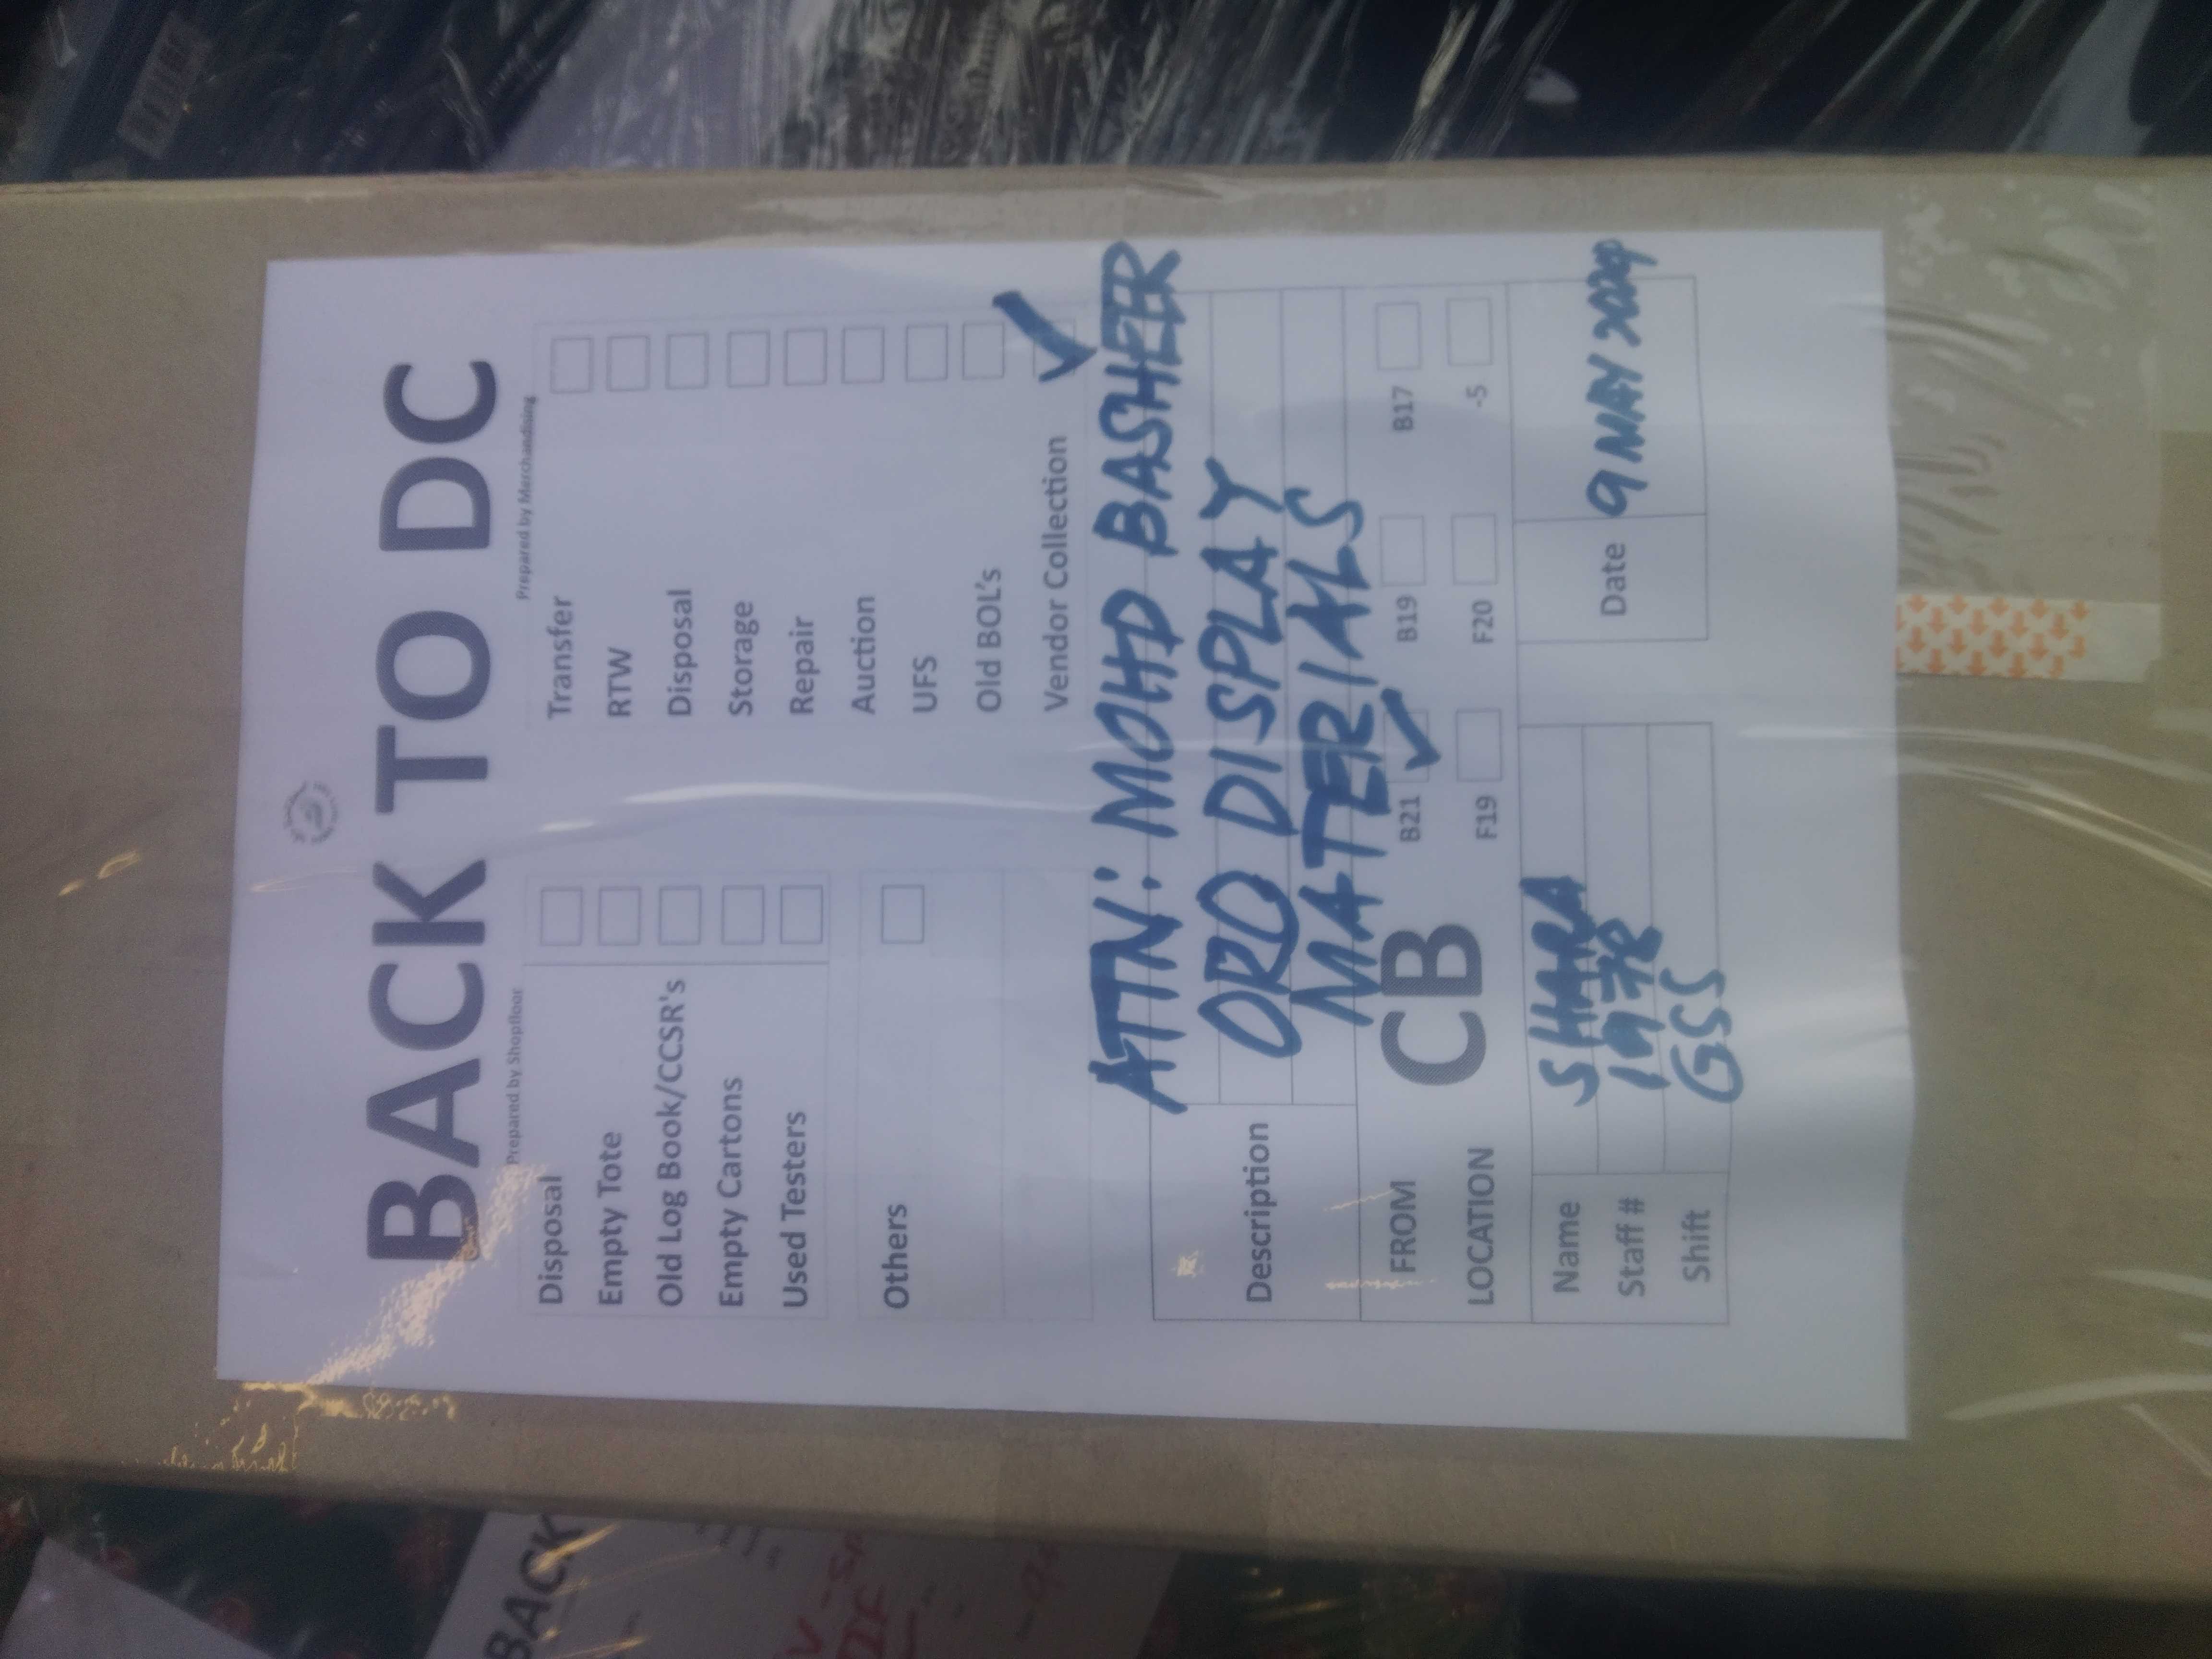 BACK TO DC
Prepared by Shopfloor
Prepared by Merchandising
Disposal
Empty Tote
Old Log Book/CCSR's
Empty Cartons
Used Testers
Others
Transfer
RTW
Disposal
Storage
Repair
Auction
UFS
Old BOL's
Vendor Collection
ATTN: MOHD BASHEER
Description ORO DISPLAY
MATERIALS
FROM CB B21 B19 B17
LOCATION F19 F20 -5
Name SHARA
Staff # 1978
Shift GSS
Date 9 MAY 2024
BACK